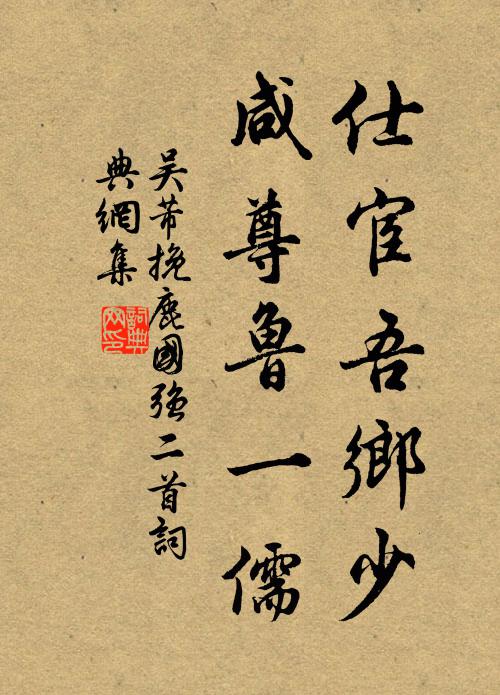 仕宦吾鄉少
咸尊魯一儒
吳芾挽鹿國強二首詞
典網集
詞典網印